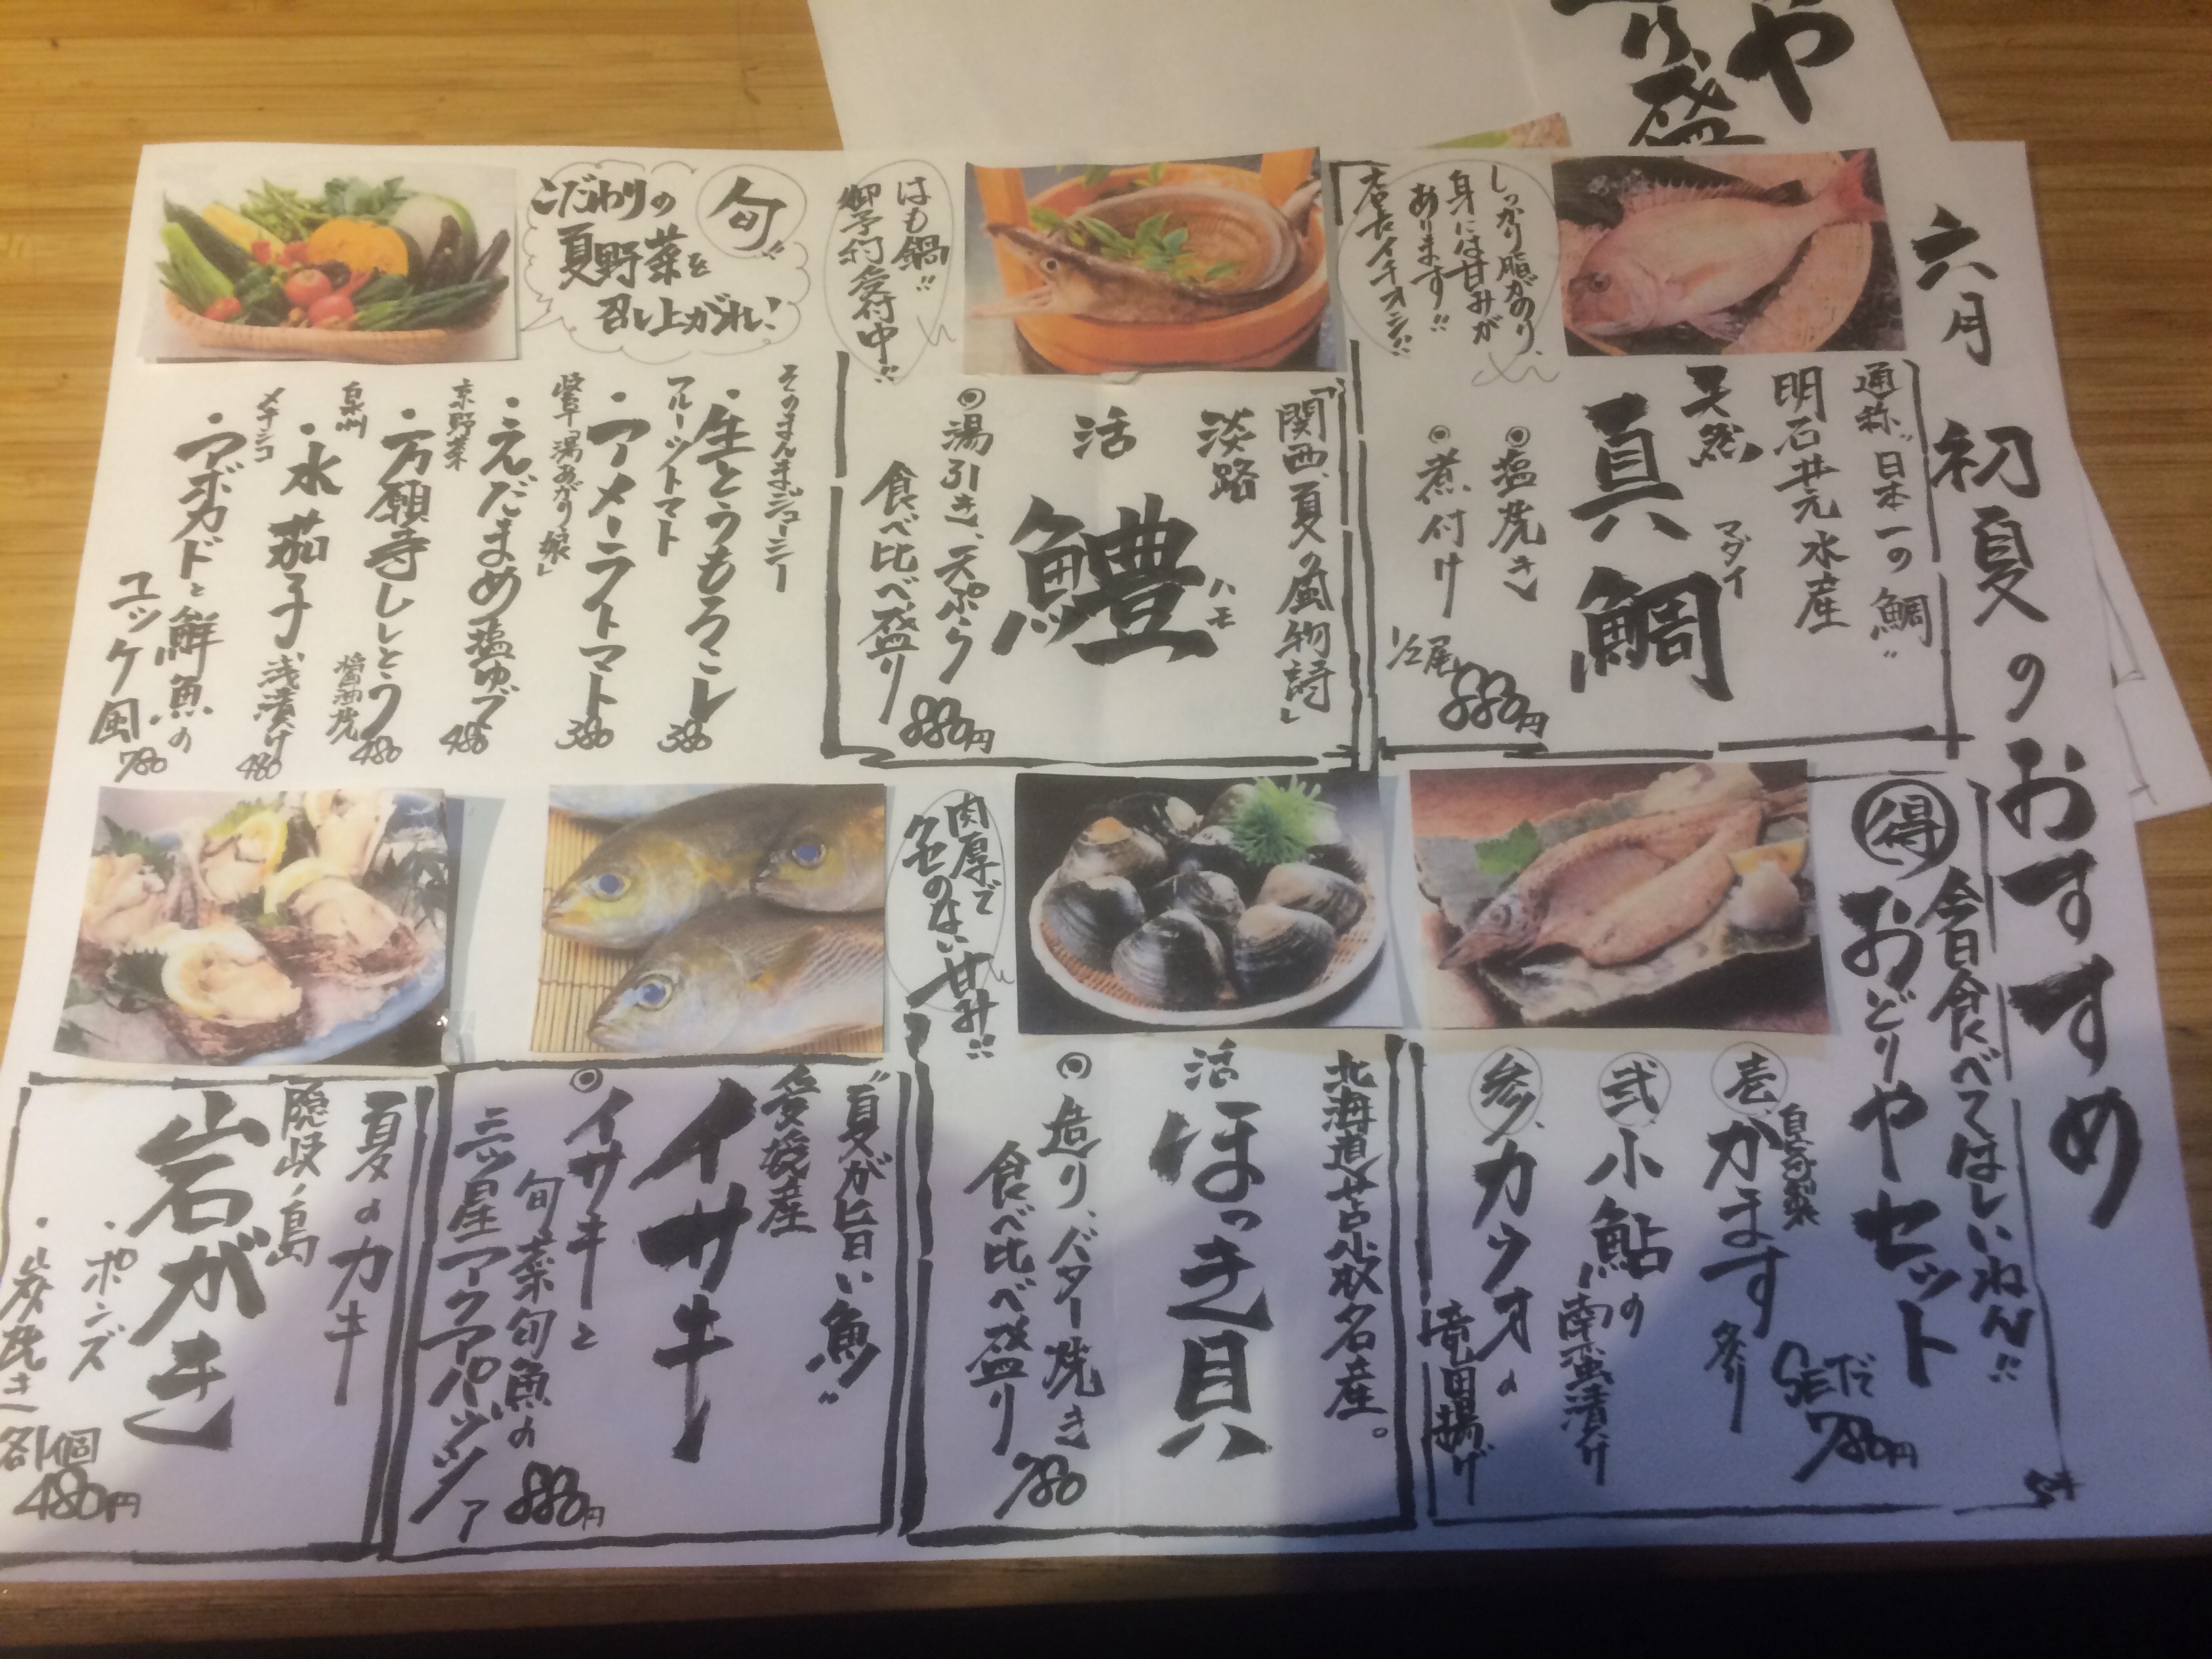 や
盛
六月 初夏のおすすめ
しっかり脂がのり、
身には甘みが
あります!!
店長イチオシ!!
通称"日本一の鯛"
明石丼元水産
天然
真鯛
マダイ
◎塩焼き
◎煮付け
1/2尾 880円
はも鍋!!
御予約受付中!!
「関西、夏の風物詩」
淡路
活
鱧
ハモ
◎湯引き、天ぷら
食べ比べ盛り
880円
旬!!
こだわりの
夏野菜を
召し上がれ!
そのまんまジューシー
・生とうもろこし 380
フルーツトマト
・アメーラトマト 380
岐阜「湯あがり娘」
・えだまめ塩ゆで 480
京野菜
・万願寺ししとう 醤油焼 480
泉州
・水茄子 浅漬け 480
メキシコ
・アボカドと鮮魚の
ユッケ風 780
今日食べてほしいねん!!
得 おどりやセット
SETだ 780円
壱 自家製 かます 炙り
弐 小鮎の南蛮漬け
参 カツオの竜田揚げ
肉厚で
クセのない甘み!!
北海道苫小牧名産。
活
ほっき貝
◎造り、バター焼き
食べ比べ盛り
780
"夏が旨い魚"
愛媛産
イサキ
◎イサキと
旬菜旬魚の
三ツ星アクアパッツァ
880円
夏のカキ
隠岐ノ島
岩がき
・ポンズ
・炭焼き
各1個
480円